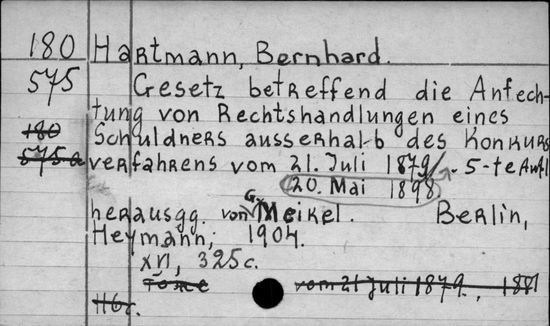 180 Hartmann, Bernhard.
575 Gesetz betreffend die Anfech-
tung von Rechtshandlungen eines
180 Schuldners ausserhalb des Konkurs
575a verfahrens vom 21. Juli 1879/. 5-te Aufl
20. Mai 1898
herausgg. von G. Meikel. Berlin,
Heymann, 1904.
XVI, 325c.
Тоже vom 21 Juli 1879., 1881
Нбг.